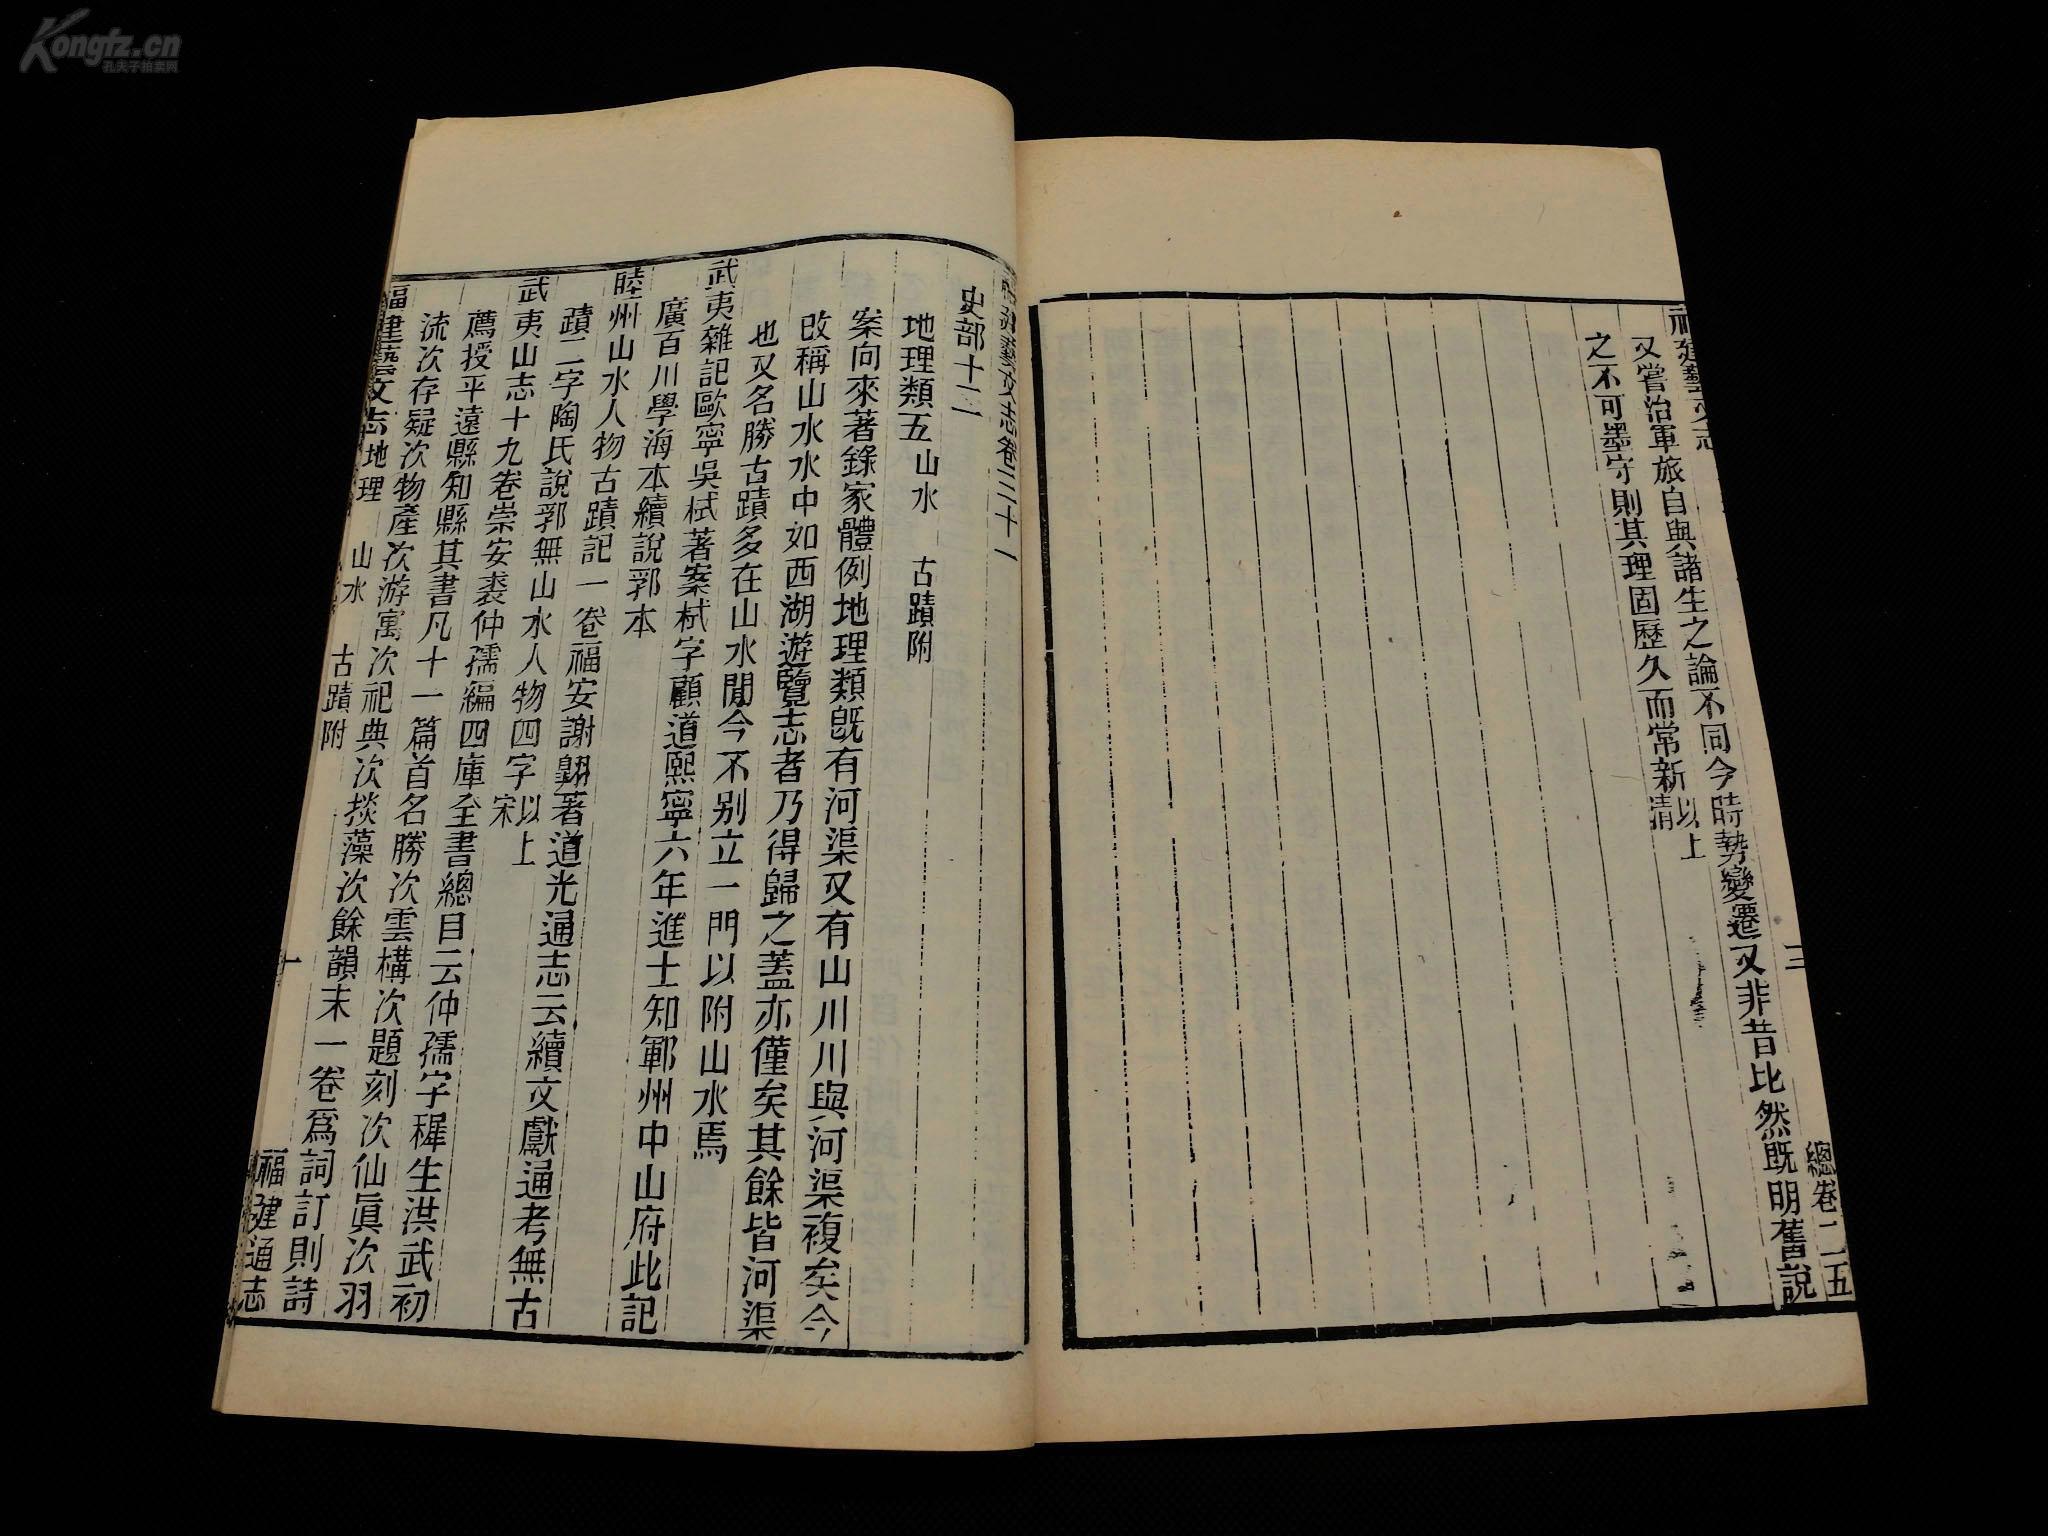 Kongfz.cn
孔夫子拍卖网
建藝文志
三
總卷二五
又嘗治軍旅自與諸生之論不同今時勢變遷又非昔比然既明舊說
之不可墨守則其理固歷久而常新以上清
福建藝文志卷三十一
史部十二
地理類五 山水 古蹟附
案向來著錄家體例地理類既有河渠又有山川川與河渠複矣今
改稱山水水中如西湖遊覽志者乃得歸之蓋亦僅矣其餘皆河渠
也又名勝古蹟多在山水閒今不別立一門以附山水焉
武夷雜記歐寧吳栻著案栻字顧道熙寧六年進士知鄆州中山府此記
廣百川學海本續說郛本
睦州山水人物古蹟記一卷福安謝翺著道光通志云續文獻通考無古
蹟二字陶氏說郛無山水人物四字以上宋
武夷山志十九卷崇安裘仲孺編四庫全書總目云仲孺字穉生洪武初
薦授平遠縣知縣其書凡十一篇首名勝次雲構次題刻次仙眞次羽
流次存疑次物產次游寓次祀典次掞藻次餘韻末一卷爲詞訂則詩
福建藝文志 地理 山水 古蹟附
一
福建通志